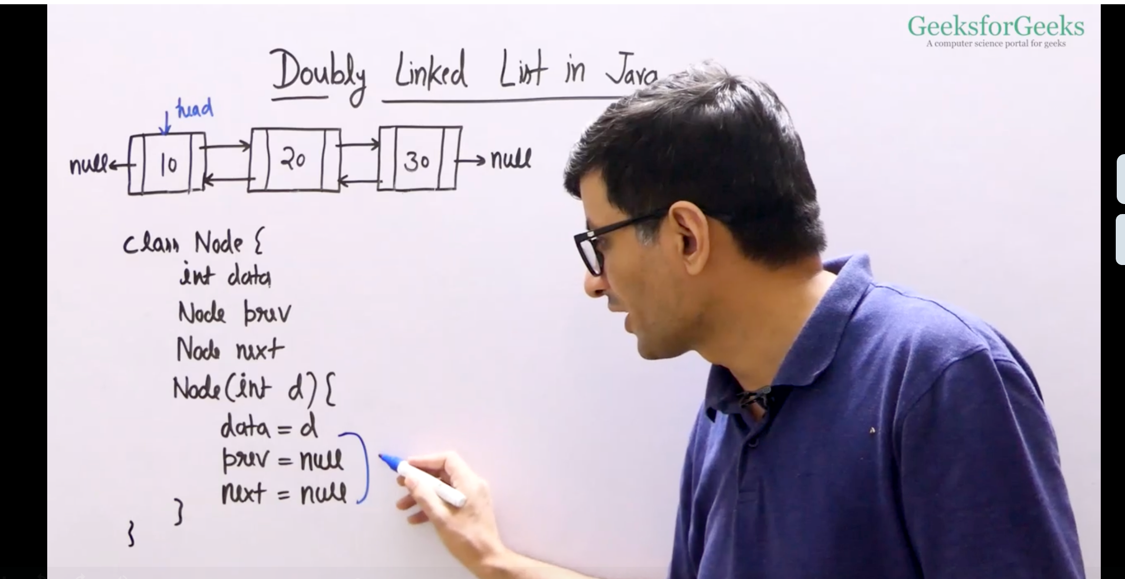 GeeksforGeeks
A computer science portal for geeks
Doubly Linked List in Java
head
null 10 20 30 null
class Node {
int data
Node prev
Node next
Node(int d) {
data = d
prev = null
next = null
}
}